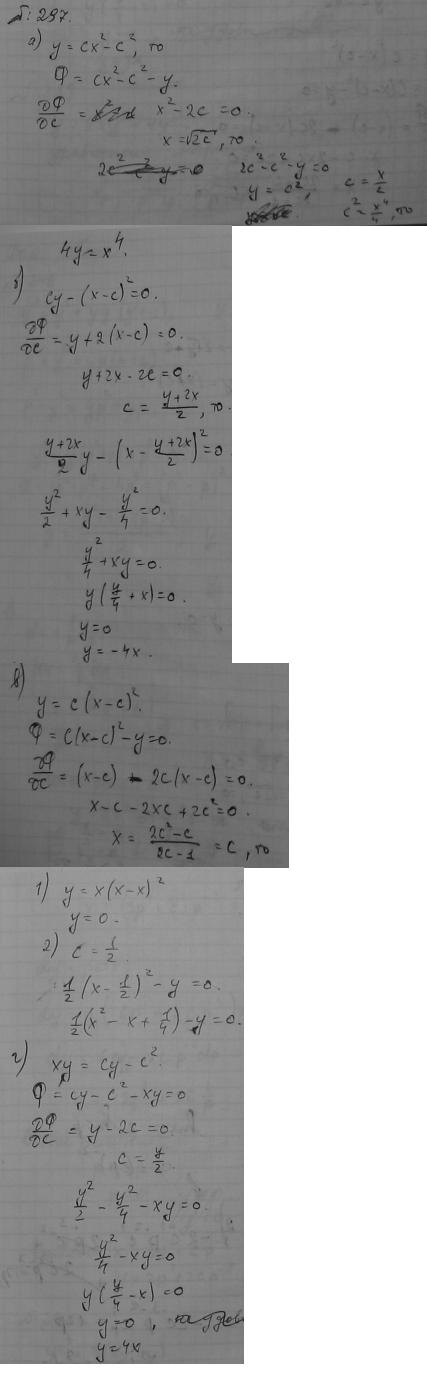 № 297.
а) y = cx² - c², то
Φ = cx² - c² - y.
∂Φ/∂c = x² - 2c = 0.
x = √2c, то
2c² - c² - y = 0
y = c², c = x/2
c² = x⁴/4, то
4y = x⁴.
б) cy - (x-c)² = 0.
∂Φ/∂c = y + 2(x-c) = 0.
y + 2x - 2c = 0.
c = (y+2x)/2, то.
(y+2x)/2 y - (x - (y+2x)/2)² = 0
y²/2 + xy - y²/4 = 0.
y²/4 + xy = 0.
y(y/4 + x) = 0.
y = 0
y = -4x.
в) y = c(x-c)².
Φ = c(x-c)² - y = 0.
∂Φ/∂c = (x-c) - 2c(x-c) = 0.
x - c - 2xc + 2c² = 0.
x = (2c² - c)/(2c - 1) = c, то
1) y = x(x-x)²
y = 0.
2) c = 1/2.
1/2(x - 1/2)² - y = 0.
1/2(x² - x + 1/4) - y = 0.
г) xy = cy - c².
Φ = cy - c² - xy = 0
∂Φ/∂c = y - 2c = 0.
c = y/2.
y²/2 - y²/4 - xy = 0.
y²/4 - xy = 0
y(y/4 - x) = 0
y = 0,
y = 4x